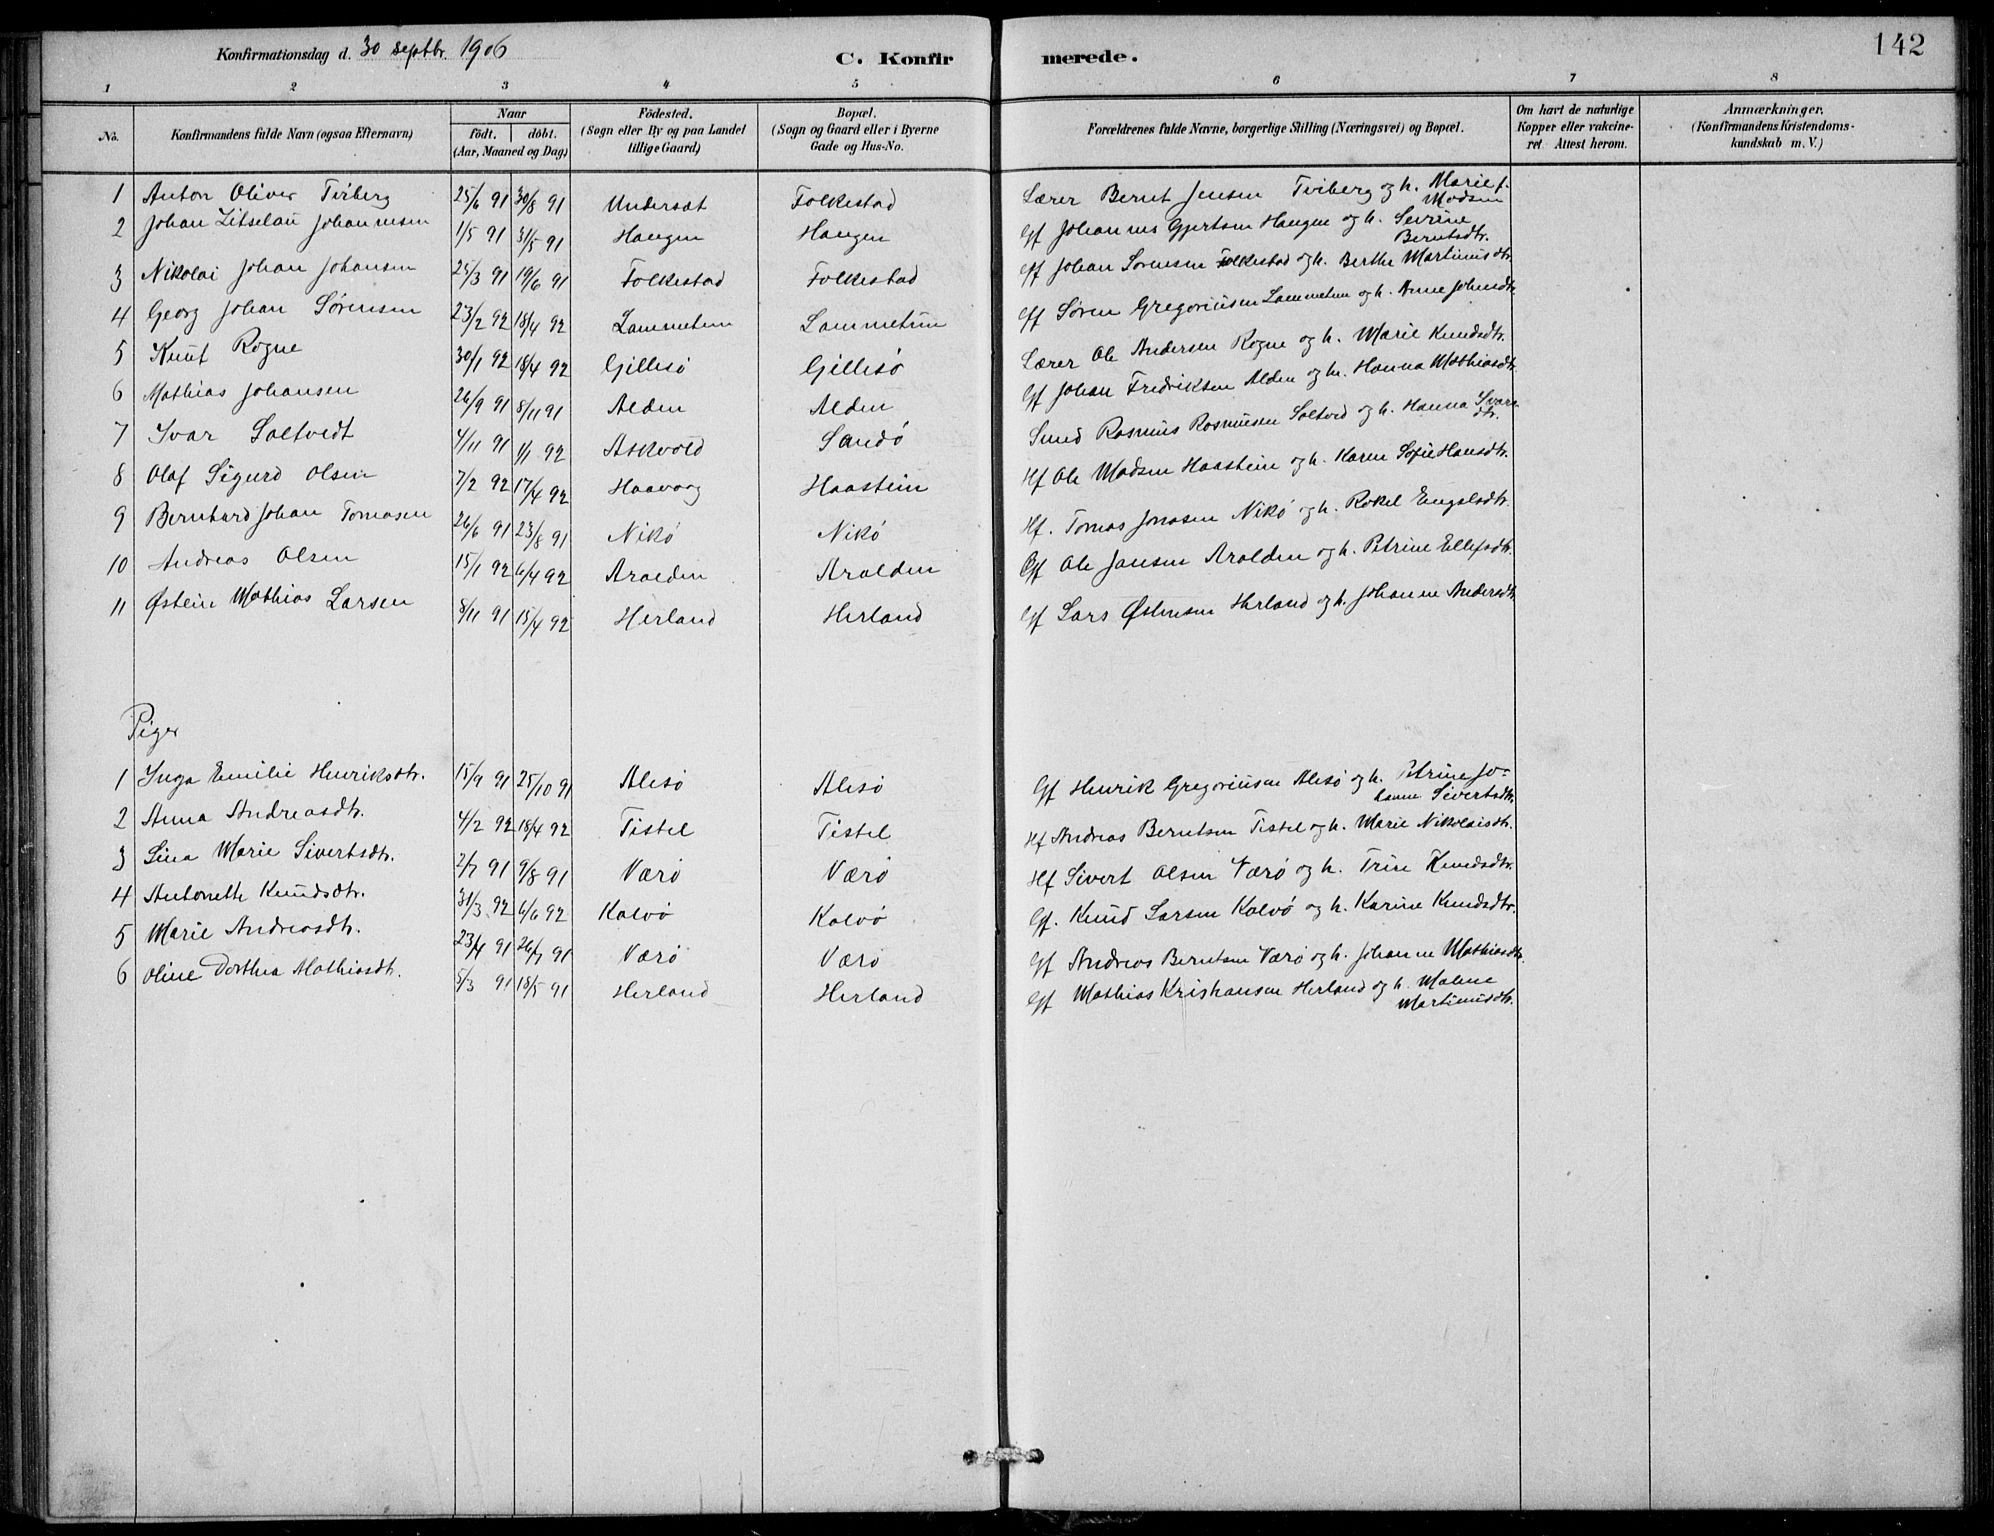 Konfirmationsdag d. 30 septbr. 1906
C. Konfirmerede.
142
1 2 3 4 5 6 7 8
No.
Konfirmandens fulde Navn (ogsaa Efternavn)
Naar
födt. döbt.
(Aar, Maaned og Dag)
Födested.
(Sogn eller By og paa Landet
tillige Gaard)
Bopæl.
(Sogn og Gaard eller i Byerne
Gade og Hus-No.
Forældrenes fulde Navne, borgerlige Stilling (Næringsvei) og Bopæl.
Om havt de naturlige
Kopper eller vakcine-
ret. Attest herom.
Anmærkninger.
(Konfirmandens Kristendoms-
kundskab m. V.)
1 Anton Oliver Tviberg 25/6 91 30/8 91 Undersæt Folkestad Lærer Bernt Jensen Tviberg og h. Marie f. Madsen
2 Johan Johannesen 1/5 91 31/5 91 Haugen Haugen Gf Johannes Gjertsen Haugen og h. Severine Berntsdtr.
3 Nikolai Johan Johansen 25/3 91 19/6 91 Folkestad Folkestad Gf Johan Sørensen Folkestad og h. Berthe Martinusdtr.
4 Georg Johan Sørensen 23/2 92 18/4 92 Lammetun Lammetun Gf Søren Gregoriusen Lammetun og h. Anne Johnsdtr.
5 Knut Rogne 30/1 92 18/4 92 Gillesø Gillesø Lærer Ole Andersen Rogne og h. Marie Knudsdtr.
6 Mathias Johansen 26/9 91 8/11 91 Alden Alden Gf Johan Fredriksen Alden og h. Hanna Mathiasdtr.
7 Ivar Saltvedt 4/11 91 1/1 92 Askvold Sandø Rasmus Rasmusen Saltved og h. Hanna Ivarsdtr.
8 Olaf Sigurd Olsen 7/2 92 17/4 92 Haavarg Haastein Hf Ole Madsen Haastein og h. Karen Sofie Hansdtr.
9 Bernhard Johan Tomasen 26/6 91 23/8 91 Nikø Nikø Hf. Tomas Jonasen Nikø og h. Rakel Engelsdtr.
10 Andreas Olsen 15/1 92 6/4 92 Aralden Aralden Gf Ole Jansen Aralden og h. Petrine Ellefsdtr.
11 Østein Mathias Larsen 8/11 91 15/4 92 Herland Herland Gf Lars Østensen Herland og h. Johanne Andersdtr.
Piger
1 Inga Emilie Henriksdtr. 15/9 91 25/10 91 Alesø Alesø Gf Henrik Gregoriusen Alesø og h. Petrine Johanne Sivertsdtr.
2 Anna Andreasdtr. 4/2 92 18/4 92 Tistel Tistel Hf Andreas Berntsen Tistel og h. Marie Nikolaisdtr.
3 Lina Marie Sivertsdtr. 2/7 91 9/8 91 Værø Værø Hf Sivert Olsen Værø og h. Trine Knudsdtr.
4 Antonette Knudsdtr. 31/3 92 6/6 92 Kalvø Kalvø Gf. Knud Larsen Kalvø og h. Karine Knudsdtr.
5 Marie Andreasdtr. 23/4 91 26/7 91 Værø Værø Gf Andreas Berntsen Værø og h. Johanne Mathiasdtr.
6 Oline Dorthea Mathiasdtr. 5/3 91 18/5 91 Herland Herland Gf Mathias Kristiansen Herland og h. Malene Martinusdtr.